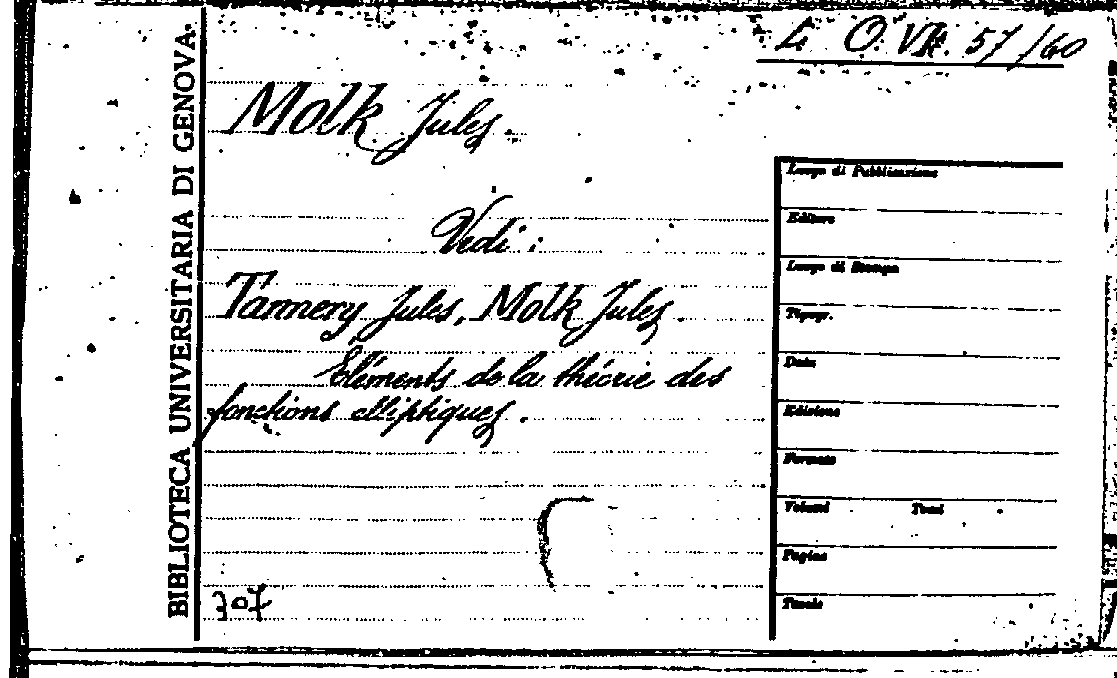 L. O. VII. 57/60
BIBLIOTECA UNIVERSITARIA DI GENOVA.
Molk Jules.
Vedi:
Tannery Jules, Molk Jules.
Eléments de la théorie des
fonctions elliptiques.
707
Luogo di Pubblicazione
Editore
Luogo di Stampa
Tipogr.
Data
Edizione
Formato
Volumi Tomi
Pagine
Tavole